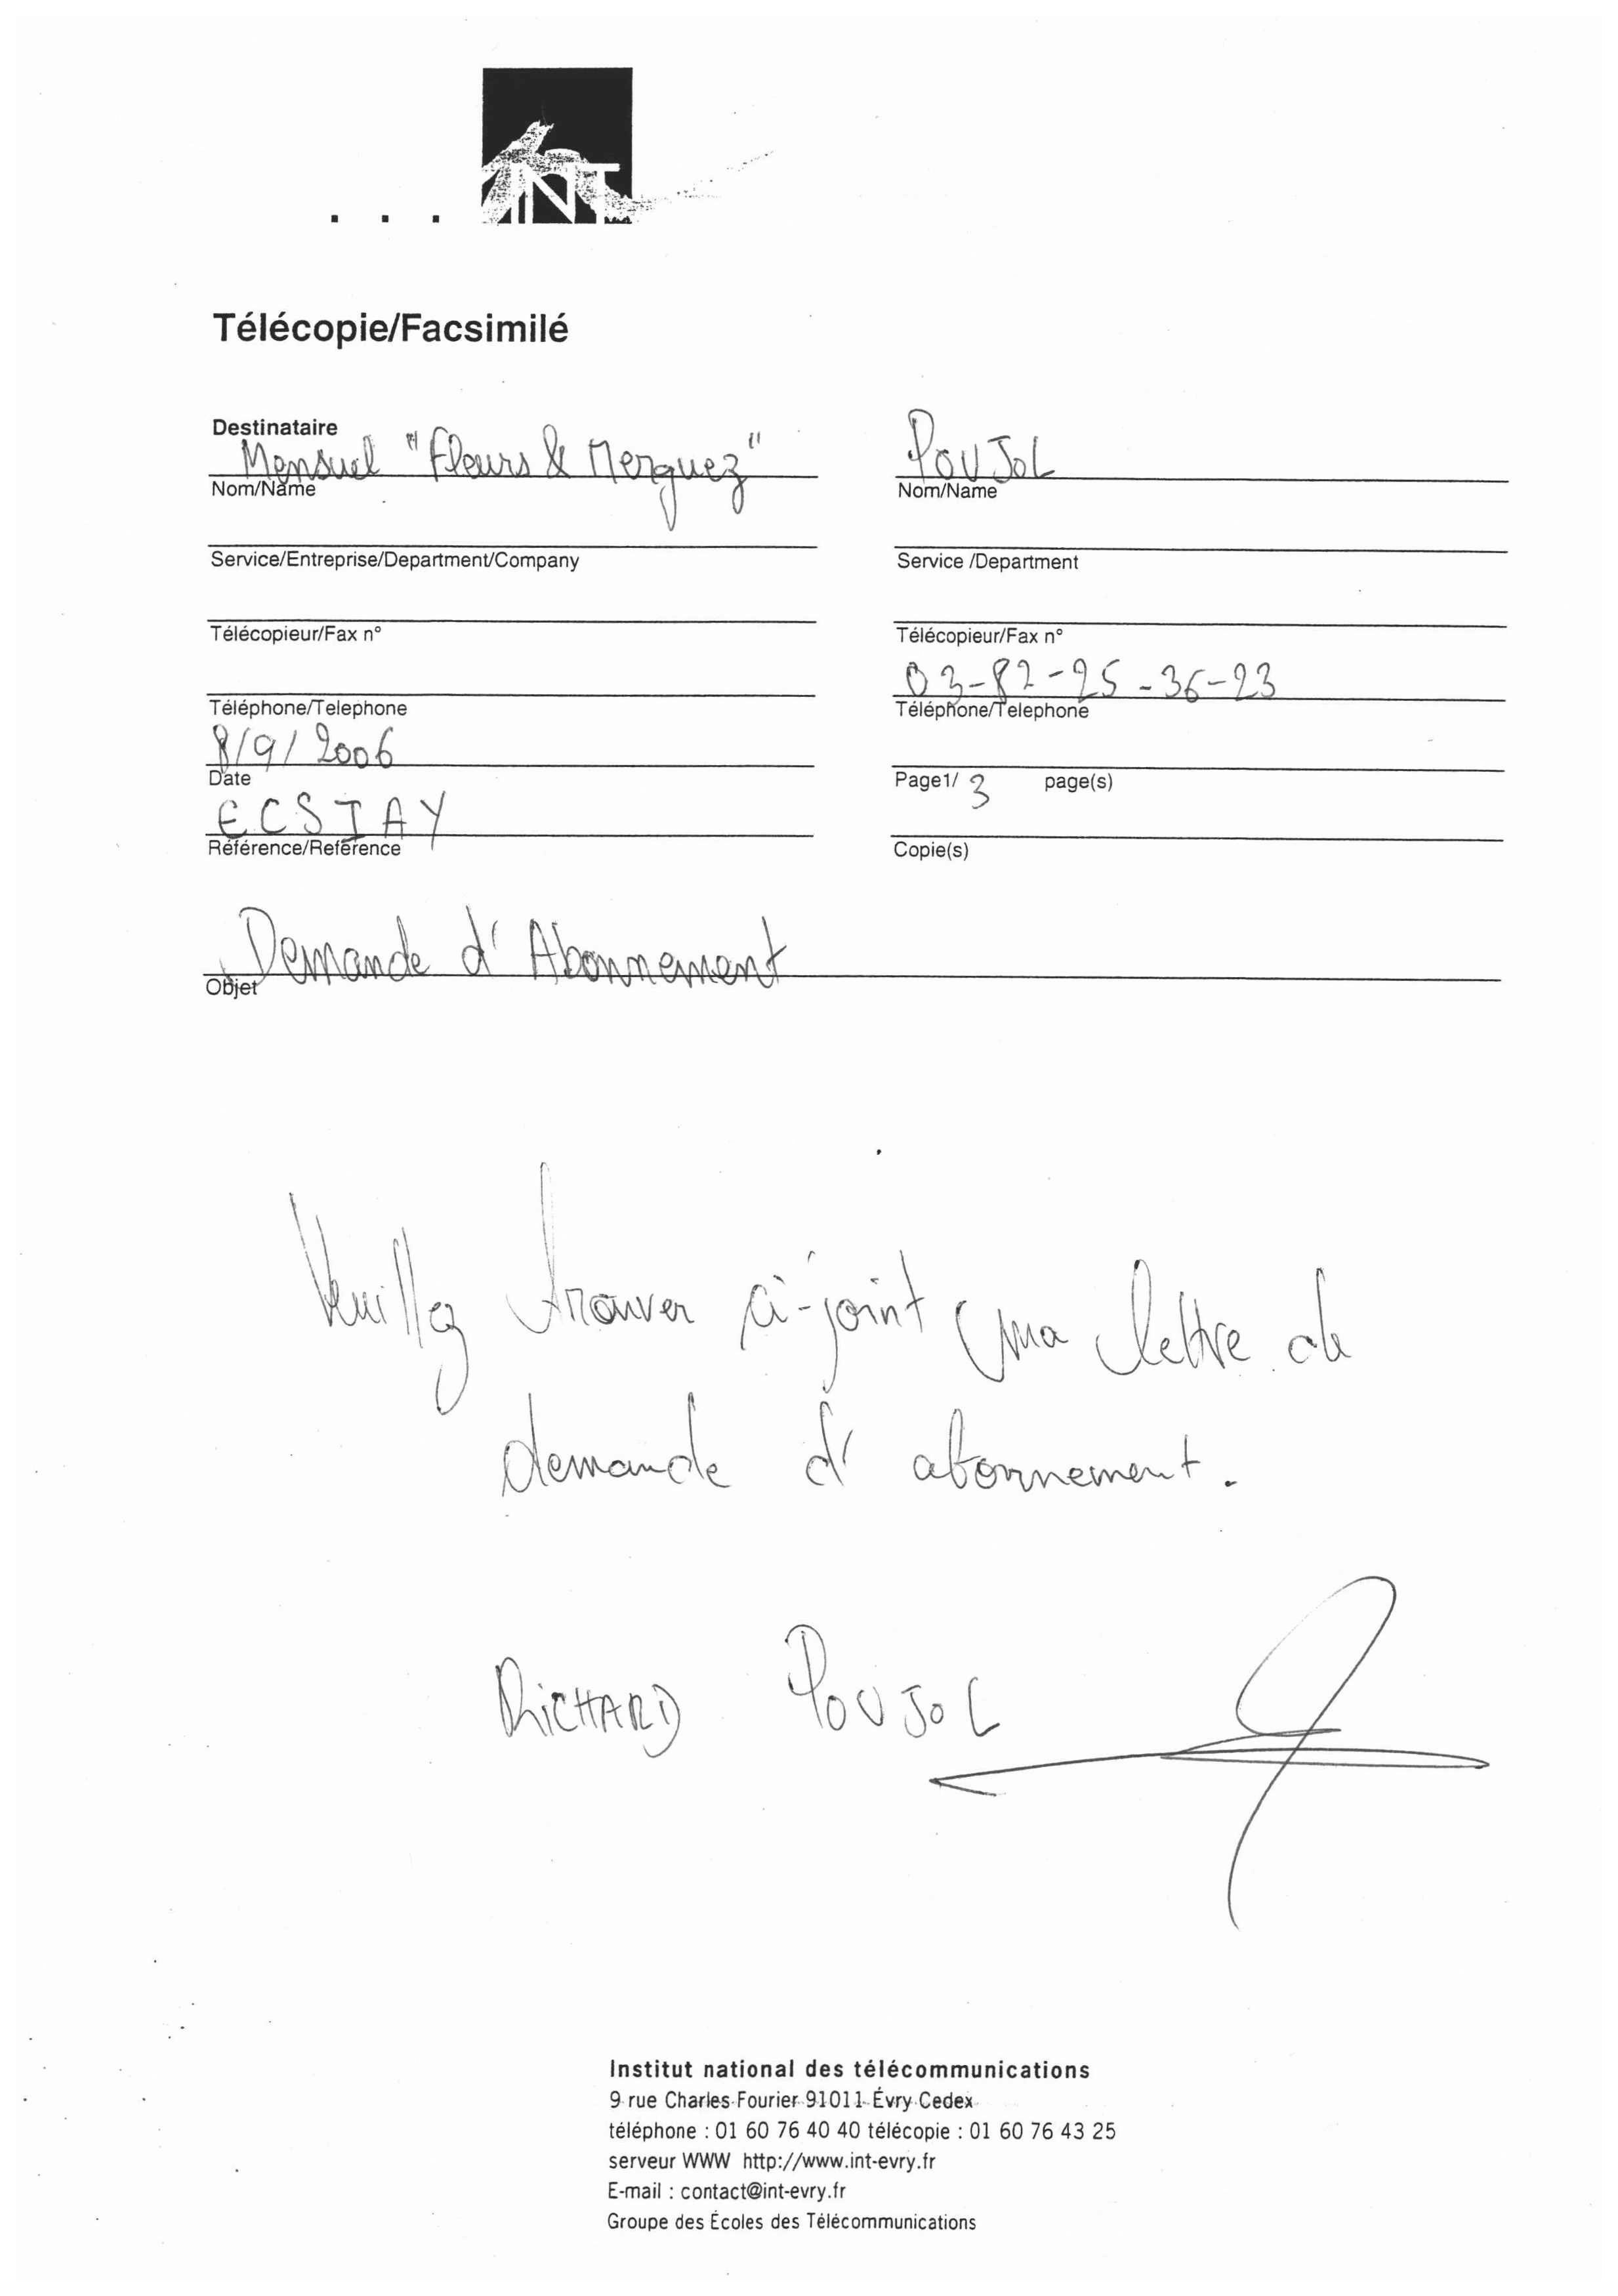 INT
Télécopie/Facsimilé
Destinataire
Mensuel "Fleurs & Merguez"
Nom/Name
Service/Entreprise/Department/Company
Télécopieur/Fax n°
Téléphone/Telephone
8/9/2006
Date
ECSIAY
Référence/Reference
POUJOL
Nom/Name
Service /Department
Télécopieur/Fax n°
03-82-25-36-23
Téléphone/Telephone
Page1/ 3 page(s)
Copie(s)
Demande d'Abonnement
Objet
Veuillez trouver ci-joint ma lettre de
demande d'abonnement.
RICHARD POUJOL
Institut national des télécommunications
9 rue Charles Fourier 91011 Évry Cedex
téléphone : 01 60 76 40 40 télécopie : 01 60 76 43 25
serveur WWW http://www.int-evry.fr
E-mail : contact@int-evry.fr
Groupe des Écoles des Télécommunications